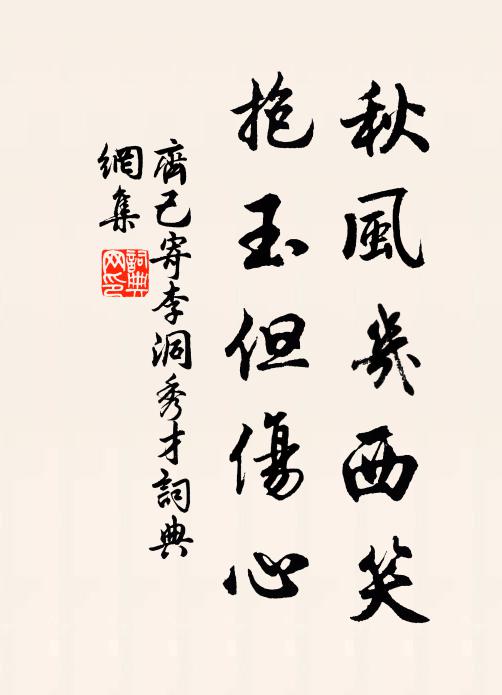 秋風幾西笑
抱玉但傷心
齊己寄李洞秀才詞典
網集
詞典
网印